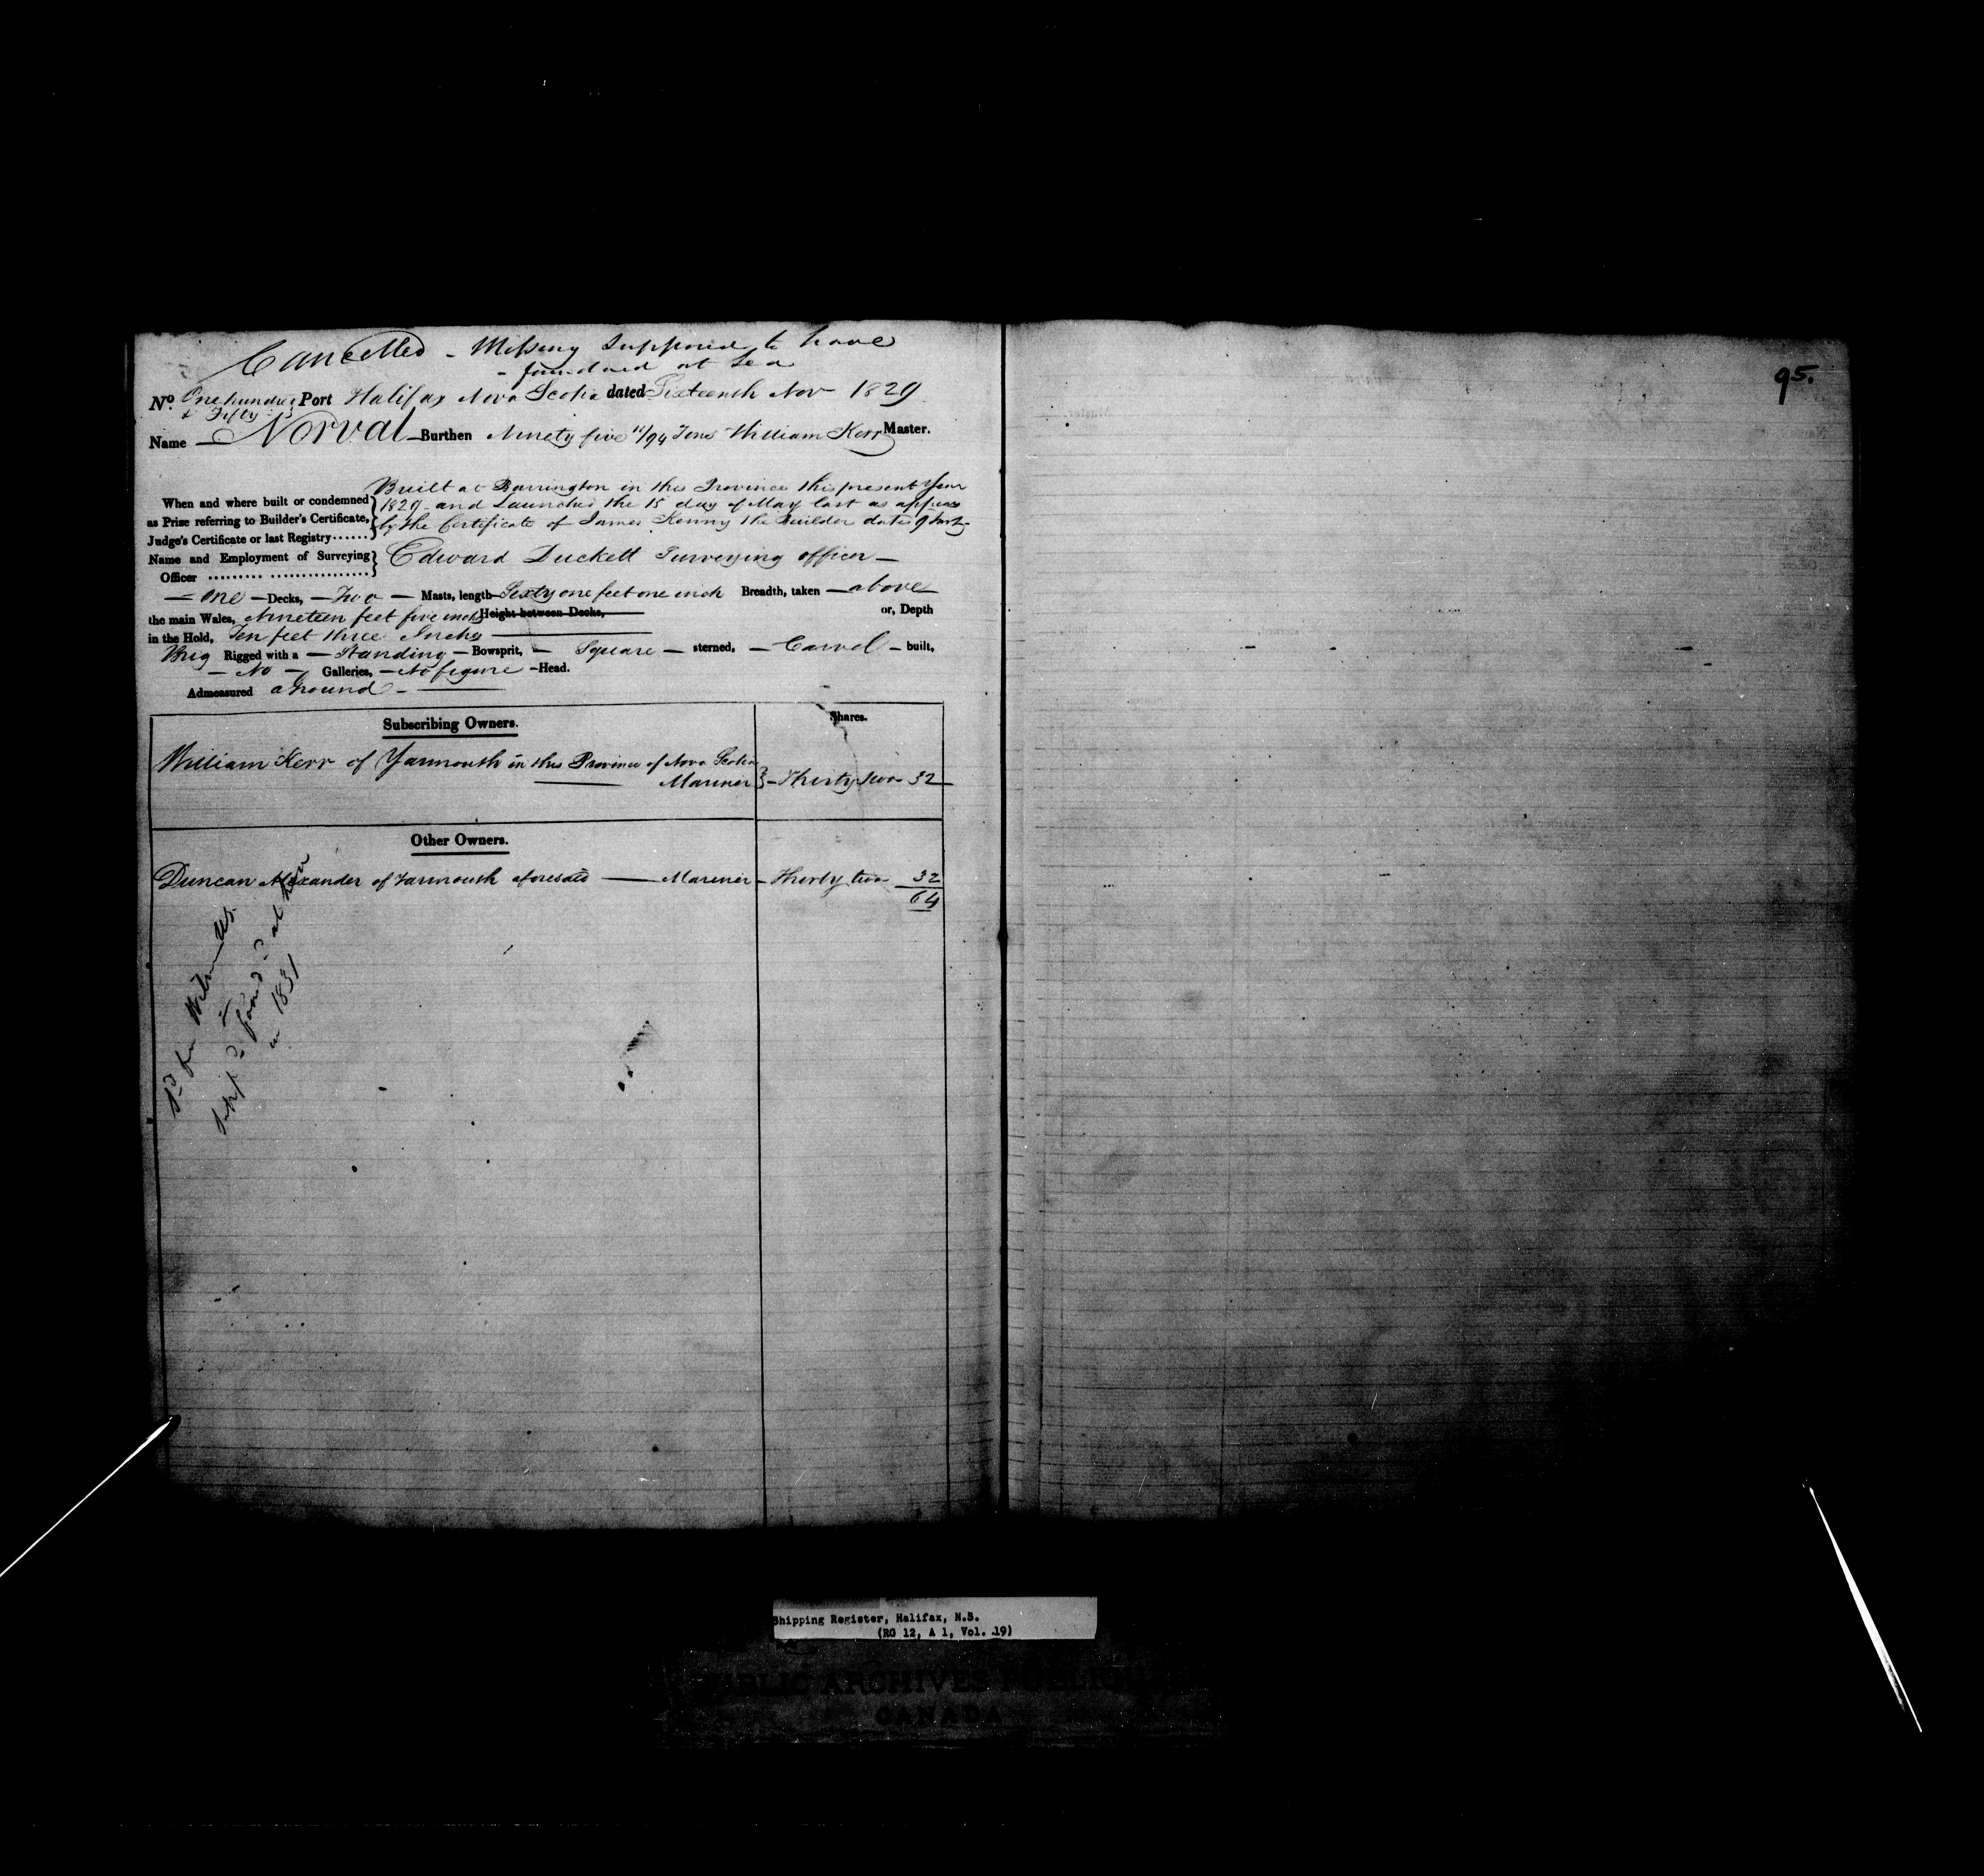 Cancelled - Missing Supposed to have
- foundered at Sea
No. One hundred & Fifty Port Halifax Nova Scotia dated Sixteenth Nov 1829
Name Norval Burthen Ninety five 11/94 Tons William Kerr Master.
Built at Barrington in this Province this present Year
When and where built or condemned 1829 and Launched the 15 day of May last as appears
as Prize referring to Builder's Certificate, by the Certificate of James Kenny the Builder dated
Judge's Certificate or last Registry
Name and Employment of Surveying Edward Duckett Surveying officer
Officer
One Decks, Two Masts, length Sixty one feet one inch Breadth, taken above
the main Wales, Nineteen feet five inches Height between Decks, or, Depth
in the Hold, Ten feet three Inches
Brig Rigged with a Standing Bowsprit, Square sterned, Carvel built,
No Galleries, No figure Head.
Admeasured aground
Subscribing Owners. Shares.
William Kerr of Yarmouth in this Province of Nova Scotia
Mariner Thirty two 32
Other Owners.
Duncan Alexander of Yarmouth aforesaid Mariner Thirty two 32
64
in 1831
95.
Shipping Register, Halifax, N.S.
(RG 12, A 1, Vol. 19)
PUBLIC ARCHIVES PUBLIQUES
CANADA